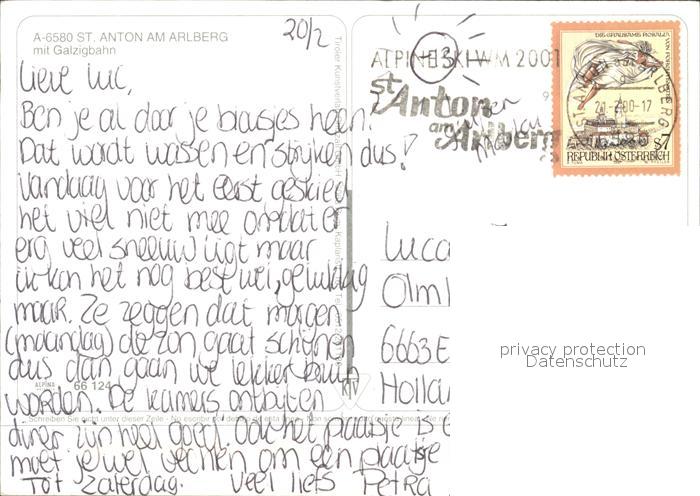 A-6580 ST. ANTON AM ARLBERG
mit Galzigbahn
20/2
Lieve Luc,
Ben je al door je blousjes heen?
Dat wordt wassen en strijken dus!
Vandaag voor het eerst geskied
het viel niet mee omdat er
erg veel sneeuw ligt maar
ik kan het nog best wel, gelukkig
maar. Ze zeggen dat morgen
(maandag) de zon gaat schijnen
dus dan gaan we lekker bruin
worden. De kamers ontbijten
diner zijn heel goed. Ook het plaatsje is
moet je wel vechten om een plaatsje
Tot zaterdag. Veel liefs Petra
ALPINA
66 124
Schreiben Sie nicht unter dieser Zeile
ALPINE SKI WM 2001
St. Anton
am Arlberg
DIE GRAUSAME ROSALIA
VON FORCHTENSTEIN
S7
REPUBLIK ÖSTERREICH
Luca
Olm
6663 E
Hollan
privacy protection
Datenschutz